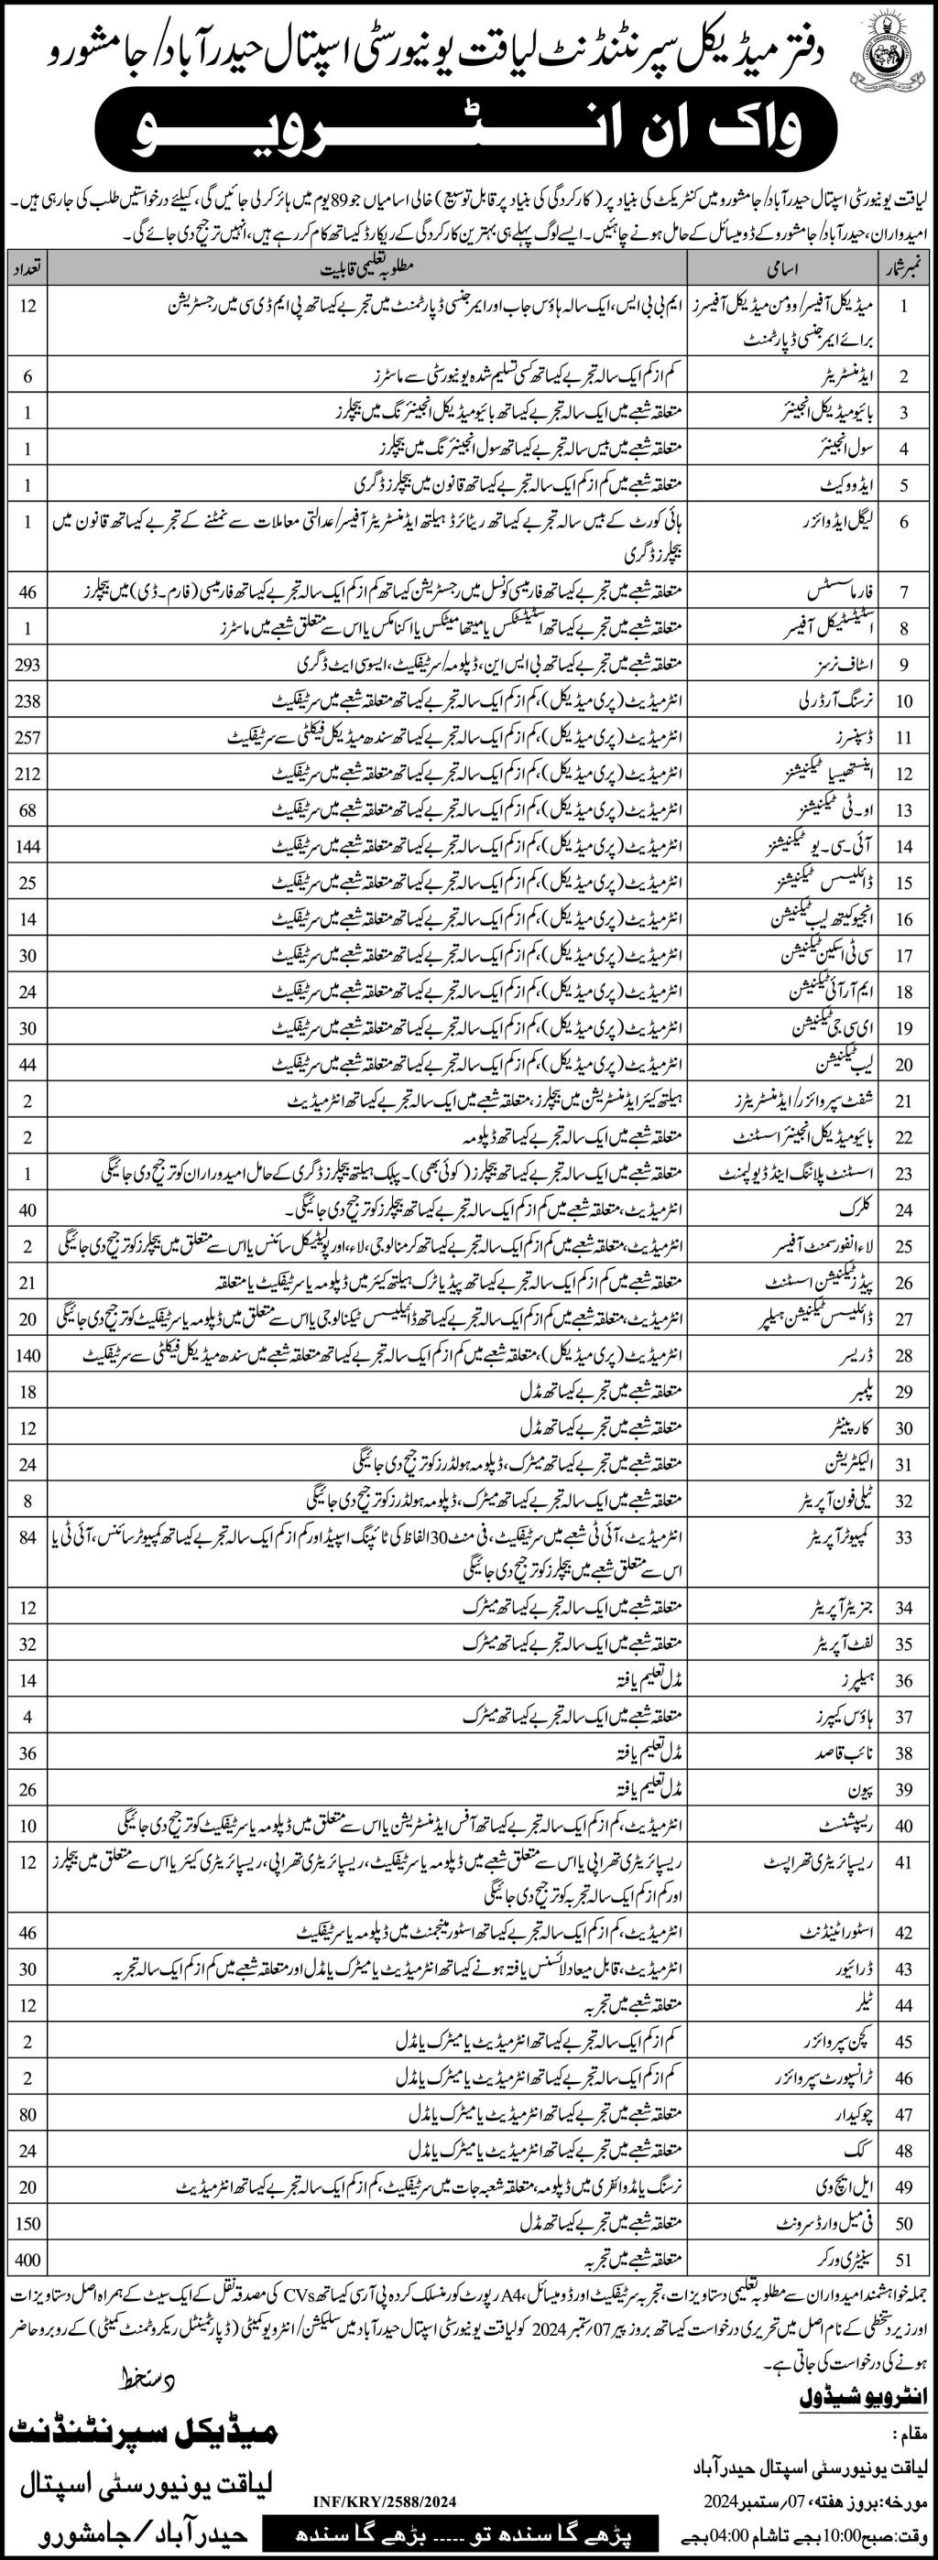 دفتر میڈیکل سپرنٹنڈنٹ لیاقت یونیورسٹی اسپتال حیدرآباد/جامشورو
واک ان انٹرویو
لیاقت یونیورسٹی اسپتال حیدرآباد/جامشورو میں کنٹریکٹ کی بنیاد پر (کارکردگی کی بنیاد پر قابل توسیع) خالی اسامیاں جو 89 یوم میں ہائر کر لی جائیں گی، کیلئے درخواستیں طلب کی جارہی ہیں۔
امیدواران، حیدرآباد/جامشورو کے ڈومسائل کے حامل ہونے چاہئیں۔ ایسے لوگ پہلے ہی بہترین کارکردگی کے ریکارڈ کیساتھ کام کر رہے ہیں، انہیں ترجیح دی جائے گی۔
نمبر شمار اسامی مطلوبہ تعلیمی قابلیت تعداد
1 میڈیکل آفیسر/وومن میڈیکل آفیسرز ایم بی بی ایس، ایک سالہ ہاؤس جاب اور ایمرجنسی ڈپارٹمنٹ میں تجربے کیساتھ پی ایم ڈی سی میں رجسٹریشن 12
برائے ایمرجنسی ڈپارٹمنٹ
2 ایڈمنسٹریٹر کم از کم ایک سالہ تجربے کیساتھ کسی تسلیم شدہ یونیورسٹی سے ماسٹرز 6
3 بائیو میڈیکل انجینئر متعلقہ شعبے میں ایک سالہ تجربے کیساتھ بائیو میڈیکل انجینئرنگ میں بیچلرز 1
4 سول انجینئر متعلقہ شعبے میں بیس سالہ تجربے کیساتھ سول انجینئرنگ میں بیچلرز 1
5 ایڈووکیٹ متعلقہ شعبے میں کم از کم ایک سالہ تجربے کیساتھ قانون میں بیچلرز ڈگری 1
6 لیگل ایڈوائزر ہائی کورٹ کے بیس سالہ تجربے کیساتھ ریٹائرڈ ہیلتھ ایڈمنسٹریٹر آفیسر/عدالتی معاملات سے نمٹنے کے تجربے کیساتھ قانون میں 1
بیچلرز ڈگری
7 فارماسسٹس متعلقہ شعبے میں تجربے کیساتھ فارمیسی کونسل میں رجسٹریشن کیساتھ کم از کم ایک سالہ تجربے کیساتھ فارمیسی (فارم۔ڈی) میں بیچلرز 46
8 اسٹیٹسٹیکل آفیسر متعلقہ شعبے میں تجربے کیساتھ اسٹیٹسٹکس یا میتھامیٹکس یا اکنامکس یا اس سے متعلق شعبے میں ماسٹرز 1
9 اسٹاف نرسز متعلقہ شعبے میں تجربے کیساتھ بی ایس این، ڈپلومہ/سرٹیفکیٹ، ایسوسی ایٹ ڈگری 293
10 نرسنگ آرڈرلی انٹرمیڈیٹ (پری میڈیکل)، کم از کم ایک سالہ تجربے کیساتھ متعلقہ شعبے میں سرٹیفکیٹ 238
11 ڈسپنسرز انٹرمیڈیٹ (پری میڈیکل)، کم از کم ایک سالہ تجربے کیساتھ سندھ میڈیکل فیکلٹی سے سرٹیفکیٹ 257
12 اینستھیسیا ٹیکنیشنز انٹرمیڈیٹ (پری میڈیکل)، کم از کم ایک سالہ تجربے کیساتھ متعلقہ شعبے میں سرٹیفکیٹ 212
13 او۔ٹی ٹیکنیشنز انٹرمیڈیٹ (پری میڈیکل)، کم از کم ایک سالہ تجربے کیساتھ متعلقہ شعبے میں سرٹیفکیٹ 68
14 آئی۔سی۔یو ٹیکنیشنز انٹرمیڈیٹ (پری میڈیکل)، کم از کم ایک سالہ تجربے کیساتھ متعلقہ شعبے میں سرٹیفکیٹ 144
15 ڈائلیسس ٹیکنیشنز انٹرمیڈیٹ (پری میڈیکل)، کم از کم ایک سالہ تجربے کیساتھ متعلقہ شعبے میں سرٹیفکیٹ 25
16 انجیو کیتھ لیب ٹیکنیشن انٹرمیڈیٹ (پری میڈیکل)، کم از کم ایک سالہ تجربے کیساتھ متعلقہ شعبے میں سرٹیفکیٹ 14
17 سی ٹی اسکین ٹیکنیشن انٹرمیڈیٹ (پری میڈیکل)، کم از کم ایک سالہ تجربے کیساتھ متعلقہ شعبے میں سرٹیفکیٹ 30
18 ایم آر آئی ٹیکنیشن انٹرمیڈیٹ (پری میڈیکل)، کم از کم ایک سالہ تجربے کیساتھ متعلقہ شعبے میں سرٹیفکیٹ 24
19 ای سی جی ٹیکنیشن انٹرمیڈیٹ (پری میڈیکل)، کم از کم ایک سالہ تجربے کیساتھ متعلقہ شعبے میں سرٹیفکیٹ 30
20 لیب ٹیکنیشن انٹرمیڈیٹ (پری میڈیکل)، کم از کم ایک سالہ تجربے کیساتھ متعلقہ شعبے میں سرٹیفکیٹ 44
21 شفٹ سپروائزر/ایڈمنسٹریٹرز ہیلتھ کیئر ایڈمنسٹریشن میں بیچلرز، متعلقہ شعبے میں ایک سالہ تجربے کیساتھ انٹرمیڈیٹ 2
22 بائیو میڈیکل انجینئر اسسٹنٹ متعلقہ شعبے میں ایک سالہ تجربے کیساتھ ڈپلومہ 2
23 اسسٹنٹ پلاننگ اینڈ ڈیولپمنٹ متعلقہ شعبے میں ایک سالہ تجربے کیساتھ بیچلرز (کوئی بھی)۔ پبلک ہیلتھ بیچلرز ڈگری کے حامل امیدوران کو ترجیح دی جائیگی 1
24 کلرک انٹرمیڈیٹ، متعلقہ شعبے میں کم از کم ایک سالہ تجربے کیساتھ بیچلرز کو ترجیح دی جائیگی۔ 40
25 لاء انفورسمنٹ آفیسر انٹرمیڈیٹ، متعلقہ شعبے میں کم از کم ایک سالہ تجربے کیساتھ کرمنالوجی، لاء، اور پولیٹیکل سائنس یا اس سے متعلق میں بیچلرز کو ترجیح دی جائیگی 2
26 پیڈز ٹیکنیشن اسسٹنٹ متعلقہ شعبے میں کم از کم ایک سالہ تجربے کیساتھ پیڈیاٹرک ہیلتھ کیئر میں ڈپلومہ یا سرٹیفکیٹ یا متعلقہ 21
27 ڈائلیسس ٹیکنیشن ہیلپر انٹرمیڈیٹ، متعلقہ شعبے میں کم از کم ایک سالہ تجربے کیساتھ ڈائیلیسس ٹیکنالوجی یا اس سے متعلق میں ڈپلومہ یا سرٹیفکیٹ کو ترجیح دی جائیگی 20
28 ڈریسر انٹرمیڈیٹ (پری میڈیکل)، متعلقہ شعبے میں کم از کم ایک سالہ تجربے کیساتھ متعلقہ شعبے میں سندھ میڈیکل فیکلٹی سے سرٹیفکیٹ 140
29 پلمبر متعلقہ شعبے میں تجربے کیساتھ مڈل 18
30 کارپینٹر متعلقہ شعبے میں تجربے کیساتھ مڈل 12
31 الیکٹریشن متعلقہ شعبے میں تجربے کیساتھ میٹرک، ڈپلومہ ہولڈرز کو ترجیح دی جائیگی 24
32 ٹیلی فون آپریٹر متعلقہ شعبے میں تجربے کیساتھ میٹرک، ڈپلومہ ہولڈرز کو ترجیح دی جائیگی 8
33 کمپیوٹر آپریٹر انٹرمیڈیٹ، آئی ٹی شعبے میں سرٹیفکیٹ، فی منٹ 30 الفاظ کی ٹائپنگ اسپیڈ اور کم از کم ایک سالہ تجربے کیساتھ کمپیوٹر سائنس، آئی ٹی یا 84
اس سے متعلق شعبے میں بیچلرز کو ترجیح دی جائیگی
34 جنریٹر آپریٹر متعلقہ شعبے میں ایک سالہ تجربے کیساتھ میٹرک 12
35 لفٹ آپریٹر متعلقہ شعبے میں ایک سالہ تجربے کیساتھ میٹرک 32
36 ہیلپرز مڈل تعلیم یافتہ 14
37 ہاؤس کیپرز متعلقہ شعبے میں ایک سالہ تجربے کیساتھ میٹرک 4
38 نائب قاصد مڈل تعلیم یافتہ 36
39 پیون مڈل تعلیم یافتہ 26
40 ریسپشنسٹ انٹرمیڈیٹ، کم از کم ایک سالہ تجربے کیساتھ آفس ایڈمنسٹریشن یا اس سے متعلق میں ڈپلومہ یا سرٹیفکیٹ کو ترجیح دی جائیگی 10
41 ریسپائریٹری تھراپسٹ ریسپائریٹری تھراپی یا اس سے متعلق شعبے میں ڈپلومہ یا سرٹیفکیٹ، ریسپائریٹری تھراپی، ریسپائریٹری کیئر یا اس سے متعلق میں بیچلرز 12
اور کم از کم ایک سالہ تجربہ کو ترجیح دی جائیگی
42 اسٹور اٹینڈنٹ انٹرمیڈیٹ، کم از کم ایک سالہ تجربے کیساتھ اسٹور مینجمنٹ میں ڈپلومہ یا سرٹیفکیٹ 46
43 ڈرائیور انٹرمیڈیٹ، قابل میعاد لائسنس یافتہ ہونے کیساتھ انٹرمیڈیٹ یا میٹرک یا مڈل اور متعلقہ شعبے میں کم از کم ایک سالہ تجربہ 30
44 ٹیلر متعلقہ شعبے میں تجربہ 12
45 کچن سپروائزر کم از کم ایک سالہ تجربے کیساتھ انٹرمیڈیٹ یا میٹرک یا مڈل 2
46 ٹرانسپورٹ سپروائزر کم از کم ایک سالہ تجربے کیساتھ انٹرمیڈیٹ یا میٹرک یا مڈل 2
47 چوکیدار متعلقہ شعبے میں تجربے کیساتھ انٹرمیڈیٹ یا میٹرک یا مڈل 80
48 کک متعلقہ شعبے میں تجربے کیساتھ انٹرمیڈیٹ یا میٹرک یا مڈل 24
49 ایل ایچ وی نرسنگ یا مڈوائفری میں ڈپلومہ، متعلقہ شعبہ جات میں سرٹیفکیٹ، کم از کم ایک سالہ تجربے کیساتھ انٹرمیڈیٹ 20
50 فی میل وارڈ سرونٹ متعلقہ شعبے میں تجربے کیساتھ مڈل 150
51 سینٹری ورکر متعلقہ شعبے میں تجربہ 400
جملہ خواہشمند امیدواران سے مطلوبہ تعلیمی دستاویزات، تجربہ سرٹیفکیٹ اور ڈومسائل، A4 رپورٹ کور منسلک کردہ پی آر سی کیساتھ CVs کی مصدقہ نقل کے ایک سیٹ کے ہمراہ اصل دستاویزات
اور زیر دستخطی کے نام اصل میں تحریری درخواست کیساتھ بروز پیر 07؍ستمبر 2024 کو لیاقت یونیورسٹی اسپتال حیدرآباد میں سلیکشن/انٹرویو کمیٹی (ڈپارٹمینٹل ریکروٹمنٹ کمیٹی) کے روبرو حاضر
ہونے کی درخواست کی جاتی ہے۔
انٹرویو شیڈول
مقام:
لیاقت یونیورسٹی اسپتال حیدرآباد
مورخہ: بروز ہفتہ، 07؍ستمبر 2024
وقت: صبح 10:00 بجے تا شام 04:00 بجے
دستخط
میڈیکل سپرنٹنڈنٹ
لیاقت یونیورسٹی اسپتال
حیدرآباد/جامشورو
INF/KRY/2588/2024
پڑھے گا سندھ تو ..... بڑھے گا سندھ